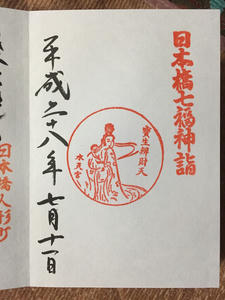 日本橋七福神詣
寶生辨財天
水天宮
平成二十八年七月十一日
日本橋人形町